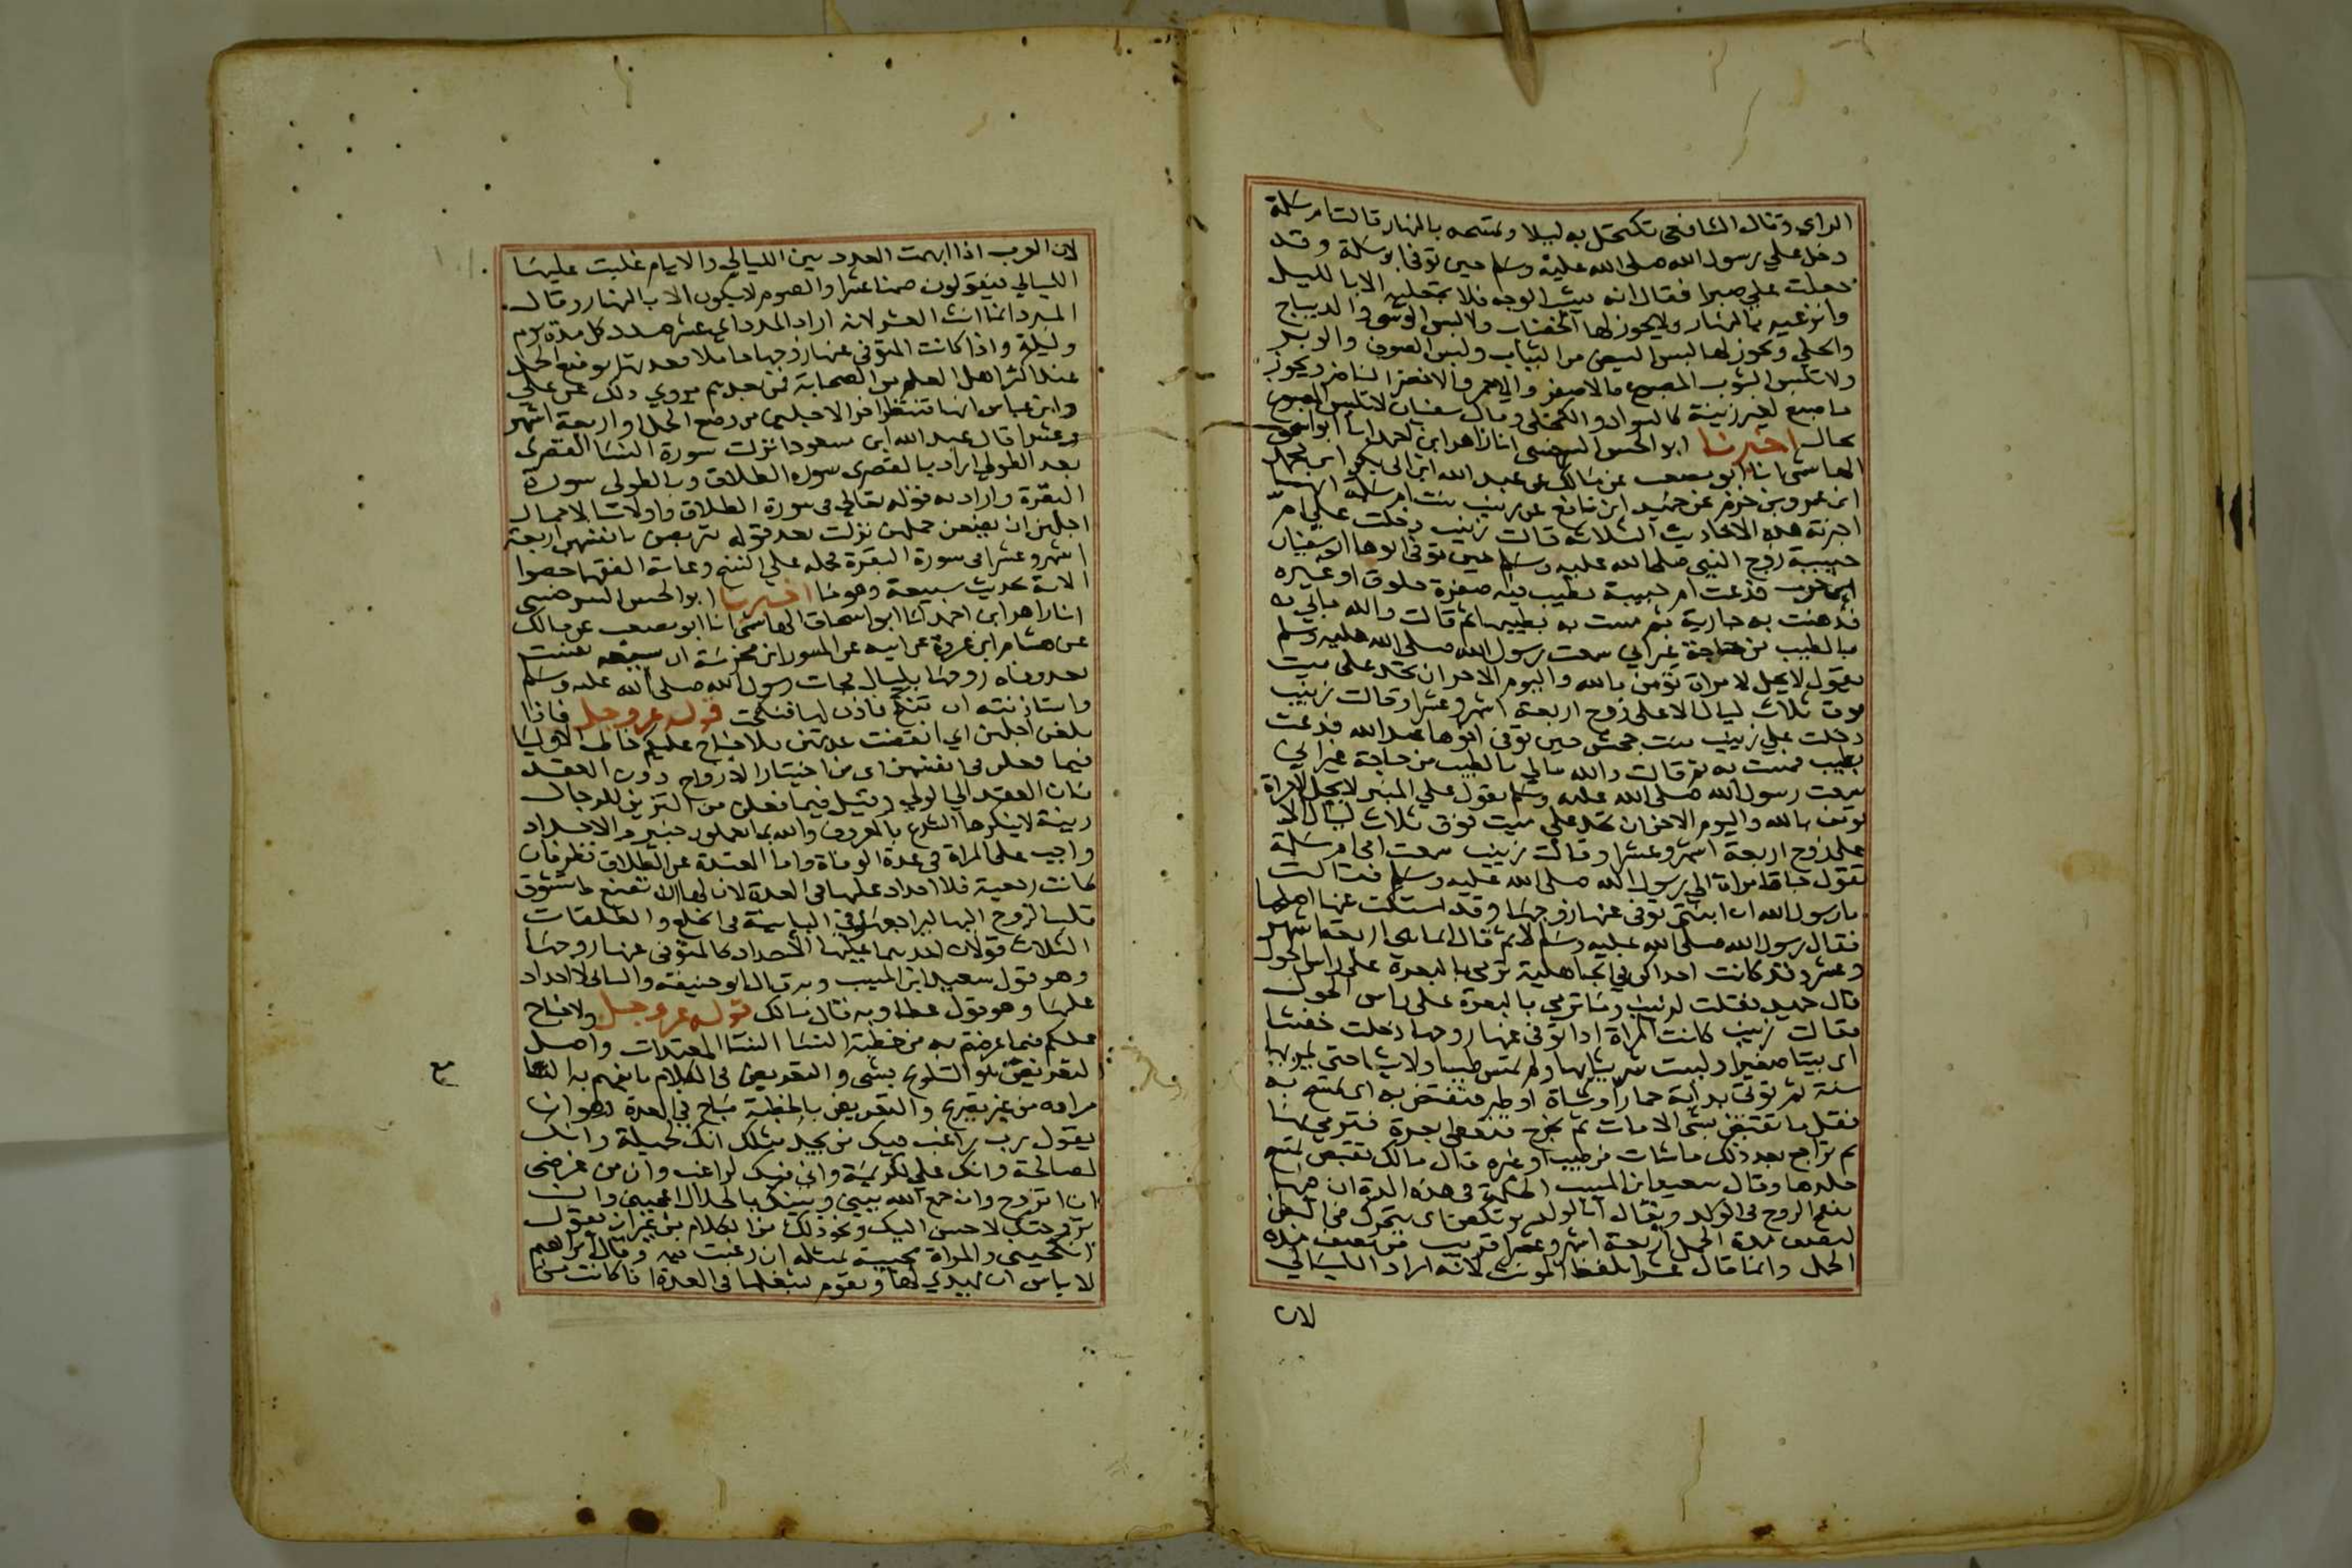 الراي وقال الشافعي تكتحل به ليلا وتمسحه بالنهار قالت ام سلمة
دخل علي رسول الله صلى الله عليه وسلم حين توفي ابو سلمة وقد
جعلت علي صبرا فقال انه يشب الوجه فلا تجعليه الا بالليل
وانزعيه بالنهار ولا يجوز لها الخضاب ولا لبس الوشي والديباج
والحلي ويجوز لها لبس البيض من الثياب ولبس الصوف والوبر
ولا تلبس الثوب المصبوغ كالاصفر والاحمر والاخضر الناضر ويجوز
ما صبغ لغير زينة كالسواد والكحلي وقال سفيان لا تلبس المصبوغ
بحال اخبرنا ابو الحسن السرخسي انا زاهر ابن احمد انا ابو اسحق
الهاشمي انا ابو مصعب عن مالك عن عبد الله ابن ابي بكر ابن محمد
ابن عمرو بن حزم عن حميد ابن نافع عن زينب بنت ام سلمة انها
اخبرته هذه الاحاديث الثلاثة قالت زينب دخلت علي ام
حبيبة زوج النبي صلى الله عليه وسلم حين توفي ابوها ابو سفيان
ابن حرب فدعت ام حبيبة بطيب فيه صفرة خلوق او غيره
فدهنت به جارية ثم مست به بطيبها ثم قالت والله مالي
بالطيب من حاجة غير اني سمعت رسول الله صلى الله عليه وسلم
يقول لا يحل لامراة تؤمن بالله واليوم الاخر ان تحد على ميت
فوق ثلاث ليال الا على زوج اربعة اشهر وعشرا وقالت زينب
دخلت علي زينب بنت جحش حين توفي اخوها عبد الله فدعت
بطيب فمست به ثم قالت والله مالي بالطيب من حاجة غير اني
سمعت رسول الله صلى الله عليه وسلم يقول علي المنبر لا يحل لامراة
تؤمن بالله واليوم الاخر ان تحد علي ميت فوق ثلاث ليال الا
على زوج اربعة اشهر وعشرا وقالت زينب سمعت امي ام سلمة
تقول جات امراة الي رسول الله صلى الله عليه وسلم فقالت
يا رسول الله ان ابنتي توفي عنها زوجها وقد اشتكت عنها
فقال رسول الله صلى الله عليه وسلم لا ثم قال انما هي اربعة اشهر
وعشر وقد كانت احداكن في الجاهلية ترمي بالبعرة على راس الحول
قال حميد فقلت لزينب وما ترمي بالبعرة على راس الحول
فقالت زينب كانت المراة اذا توفي عنها زوجها دخلت حفشا
اي بيتا صغيرا ولبست شر ثيابها ولم تمس طيبا ولا شيا حتي تمر بها
سنة ثم توتي بدابة حمار او شاة او طير فتفتض به اي تمسح به
فقل ما تفتض بشي الا مات ثم تخرج فتعطي بعرة فترمي بها
ثم تراجع بعد ذلك ما شات من طيب او غيره قال مالك تفتض تمسح
جلدها وقال سعيد ابن المسيب الحكمة في هذه المدة ان فيها
ينفخ الروح في الولد ويقال ان الولد يرتكض اي يتحرك في البطن
لنصف مدة الحمل اربعة اشهر وعشرا قريب من نصف مدة
الحمل وانما قال عشرا بلفظ المونث لانه اراد الليالي
لان
لان العرب اذا ابهمت العدد بين الليالي والايام غلبت عليها
الليالي فيقولون صمنا عشرا والصوم لا يكون الا بالنهار وقال
المبرد انما انث العشر لانه اراد المدد اي عشر مدد كل مدة يوم
وليلة واذا كانت المتوفي عنها زوجها حاملا فعدتها بوضع الحمل
عند اكثر اهل العلم من الصحابة فمن بعدهم وروي ذلك عن علي
وابن عباس انها تنتظر اخر الاجلين من وضع الحمل او اربعة اشهر
وعشرا قال عبد الله ابن مسعود انزلت سورة النسا القصرى
بعد الطولى اراد بالقصرى سورة الطلاق وبالطولى سورة
البقرة واراد به قوله تعالي في سورة الطلاق واولات الاحمال
اجلهن ان يضعن حملهن نزلت بعد قوله يتربصن بانفسهن اربعة
اشهر وعشرا في سورة البقرة فحمله علي النسخ وعامة الفقها خصوا
الاية بحديث سبيعة وهو ما اخبرنا ابو الحسن السرخسي
انا زاهر ابن احمد انا ابو اسحاق الهاشمي انا ابو مصعب عن مالك
عن هشام ابن عروة عن ابيه عن المسور ابن مخرمة ان سبيعة نفست
بعد وفاة زوجها بليال فجات رسول الله صلى الله عليه وسلم
واستاذنته ان تنكح فاذن لها فنكحت قوله عز وجل فاذا
بلغن اجلهن اي انقضت عدتهن فلا جناح عليكم خاطب الاوليا
فيما فعلن في انفسهن اي من اختيار الازواج دون العقد
فان العقد الي الولي وقيل فيما فعلن من التزين للرجال
زينة لا ينكرها الشرع بالمعروف والله بما تعملون خبير والاحداد
واجب على المراة في عدة الوفاة واما المعتدة عن الطلاق نظر فان
كانت رجعية فلا احداد عليها في العدة لان لها ان تصنع ما تشوق
قلب الزوج اليها ليراجعها وفي الباينة في الخلع والطلقات
الثلاث قولان احدهما عليها الاحداد كالمتوفي عنها زوجها
وهو قول سعيد ابن المسيب وبه قال ابو حنيفة والثاني لا احداد
عليها وهو قول عطا وبه قال مالك قوله عز وجل ولا جناح
عليكم فيما عرضتم به من خطبة النسا النسا المعتدات واصل
التعريض هو التلويح بشي والتعريض في الكلام ما يفهم به
مراده من غير تصريح والتعريض بالخطبة مباح في العدة وهو ان
يقول رب راغب فيك من يجد مثلك انك لجميلة وانك
لصالحة وانك علي لكريمة واني فيك لراغب وان من غرضي
ان اتزوج وان جمع الله بيني وبينك بالحلال اعجبني وان
تزوجتك لاحسن اليك ونحو ذلك من الكلام من غير ان يقول
انكحيني والمراة مجيبة بمثله ان رغبت فيه وقال ابراهيم
لا باس ان يهدي لها ويقوم بشغلها في العدة اذا كانت من